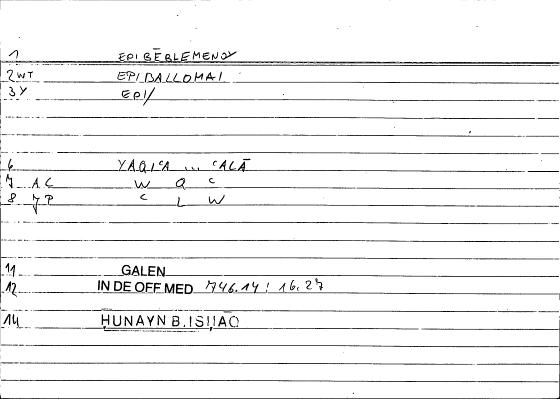 1 EPIBĒBLEMENOY
2 WT EPIBALLOMAI
3 Y EPI/
6 YAQIʿA ... ʿALĀ
7 AC W Q ʿ
8 7P ʿ L W
11 GALEN
12 IN DE OFF MED 746.14 : 16.27
14 ḤUNAYN B. ISḤĀQ